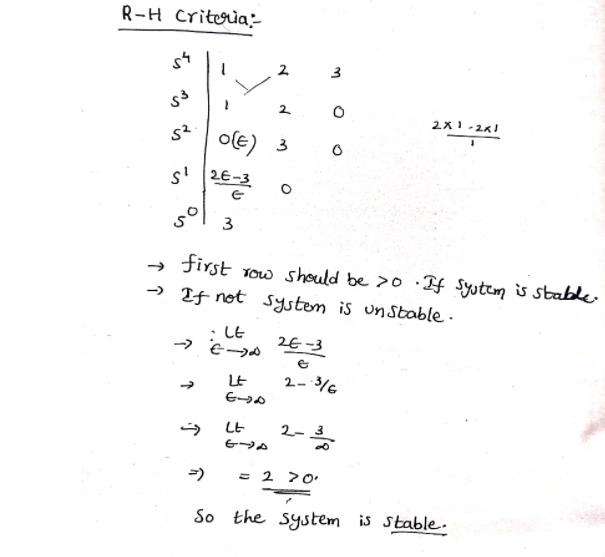 R-H Criteria:-
s⁴ | 1 2 3
s³ | 1 2 0
2×1-2×1/1
s² | 0(ϵ) 3 0
s¹ | 2ϵ-3/ϵ 0
s⁰ | 3
→ first row should be >0. If system is stable.
→ If not system is unstable.
→ : Lt ϵ→∞ 2ϵ-3/ϵ
→ Lt ϵ→∞ 2-3/ϵ
⇒ Lt ϵ→∞ 2-3/∞
⇒ = 2 >0.
So the system is stable.